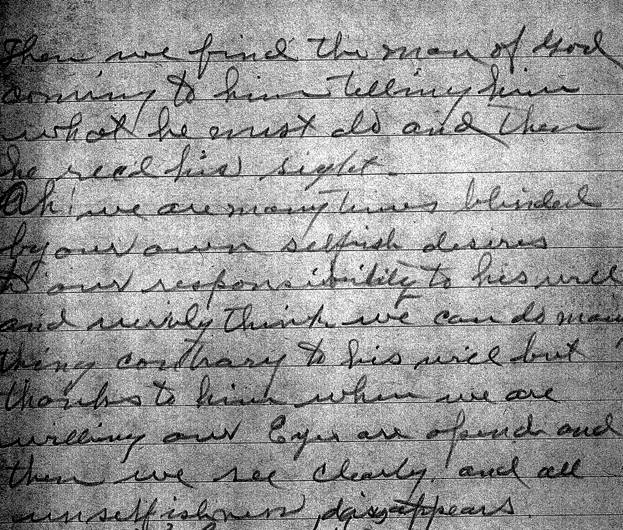 Then we find the man of God
coming to him telling him
what he must do and then
he rec'd his sight.
Ah! we are many times blinded
by our own selfish desires
to our responsibility to his will
and think we can do many
thing contrary to his will but
thanks to him when we are
willing our Eyes are opend and
then we see clearly and all
unselfishness disappears